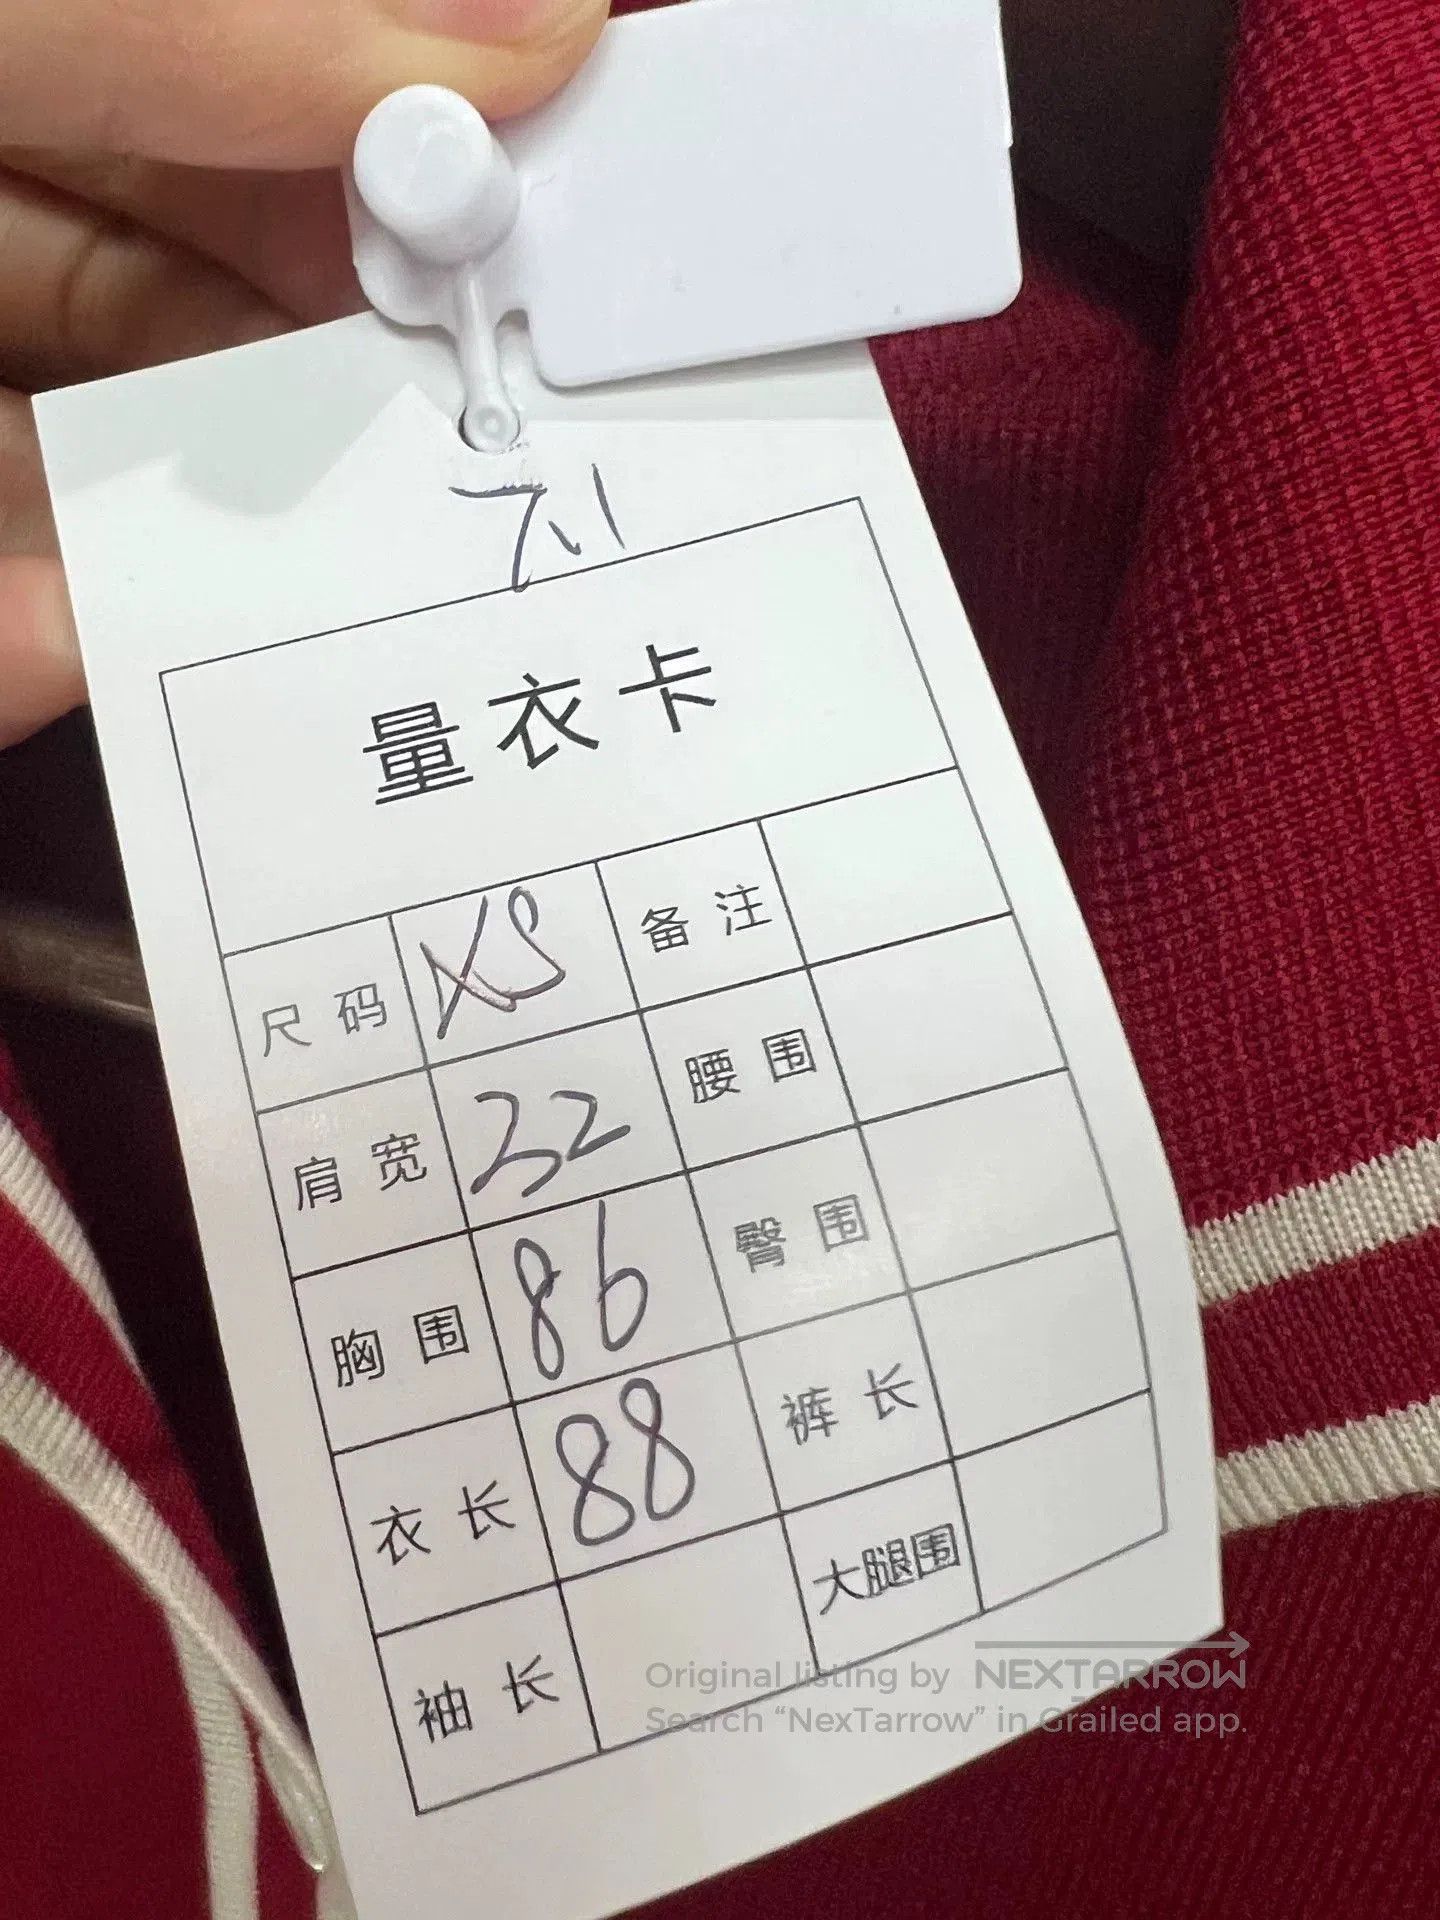 7.1
量衣卡
尺码 XS 备注
肩宽 32 腰围
胸围 86 臀围
衣长 88 裤长
袖长 大腿围
Original listing by NEXTARROW
Search “NexTarrow” in Grailed app.